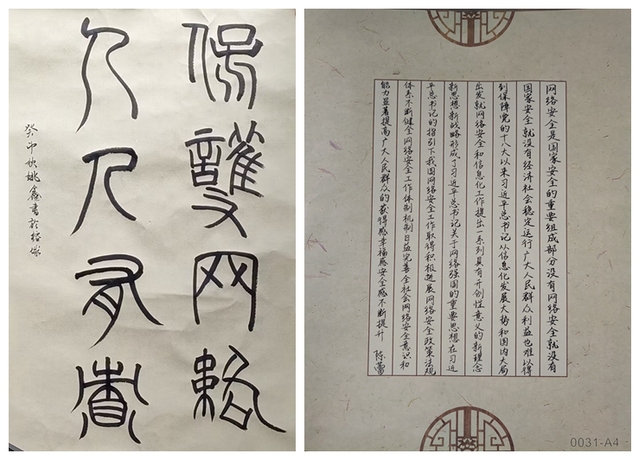 保護网絡
人人有責
癸卯秋姚鑫書於
网络安全是国家安全的重要组成部分没有网络安全就没有
国家安全就没有经济社会稳定运行广大人民群众利益也难以得
到保障党的十八大以来习近平总书记从信息化发展大势和国内大局
出发就网络安全和信息化工作提出一系列具有开创性意义的新理念
新思想新战略形成了习近平总书记关于网络强国的重要思想在习近
平总书记的指引下我国网络安全工作取得积极进展网络安全政策法规
体系不断健全网络安全工作体制机制日益完善全社会网络安全意识和
能力显著提高广大人民群众的获得感幸福感安全感不断提升 陈蕾
0031-A4